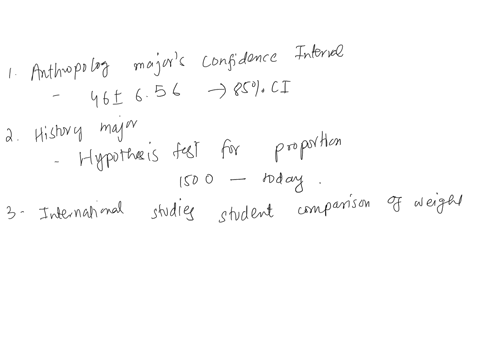 1. Anthropolog major's Confidence Interval
- 46 ± 6.56 → 85% CI
2. History major
- Hypothesis test for proportion
1500 — today.
3- International studies student comparison of weight